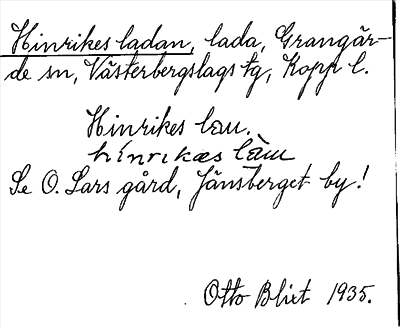 Hinrikes ladan, lada, Grangär-
de sn, Västerbergslags tg, Kopp l.
Hinrikes lan.
hinrikäs làm
Se O. Lars gård, Jänsberget by!
Otto Blixt 1935.